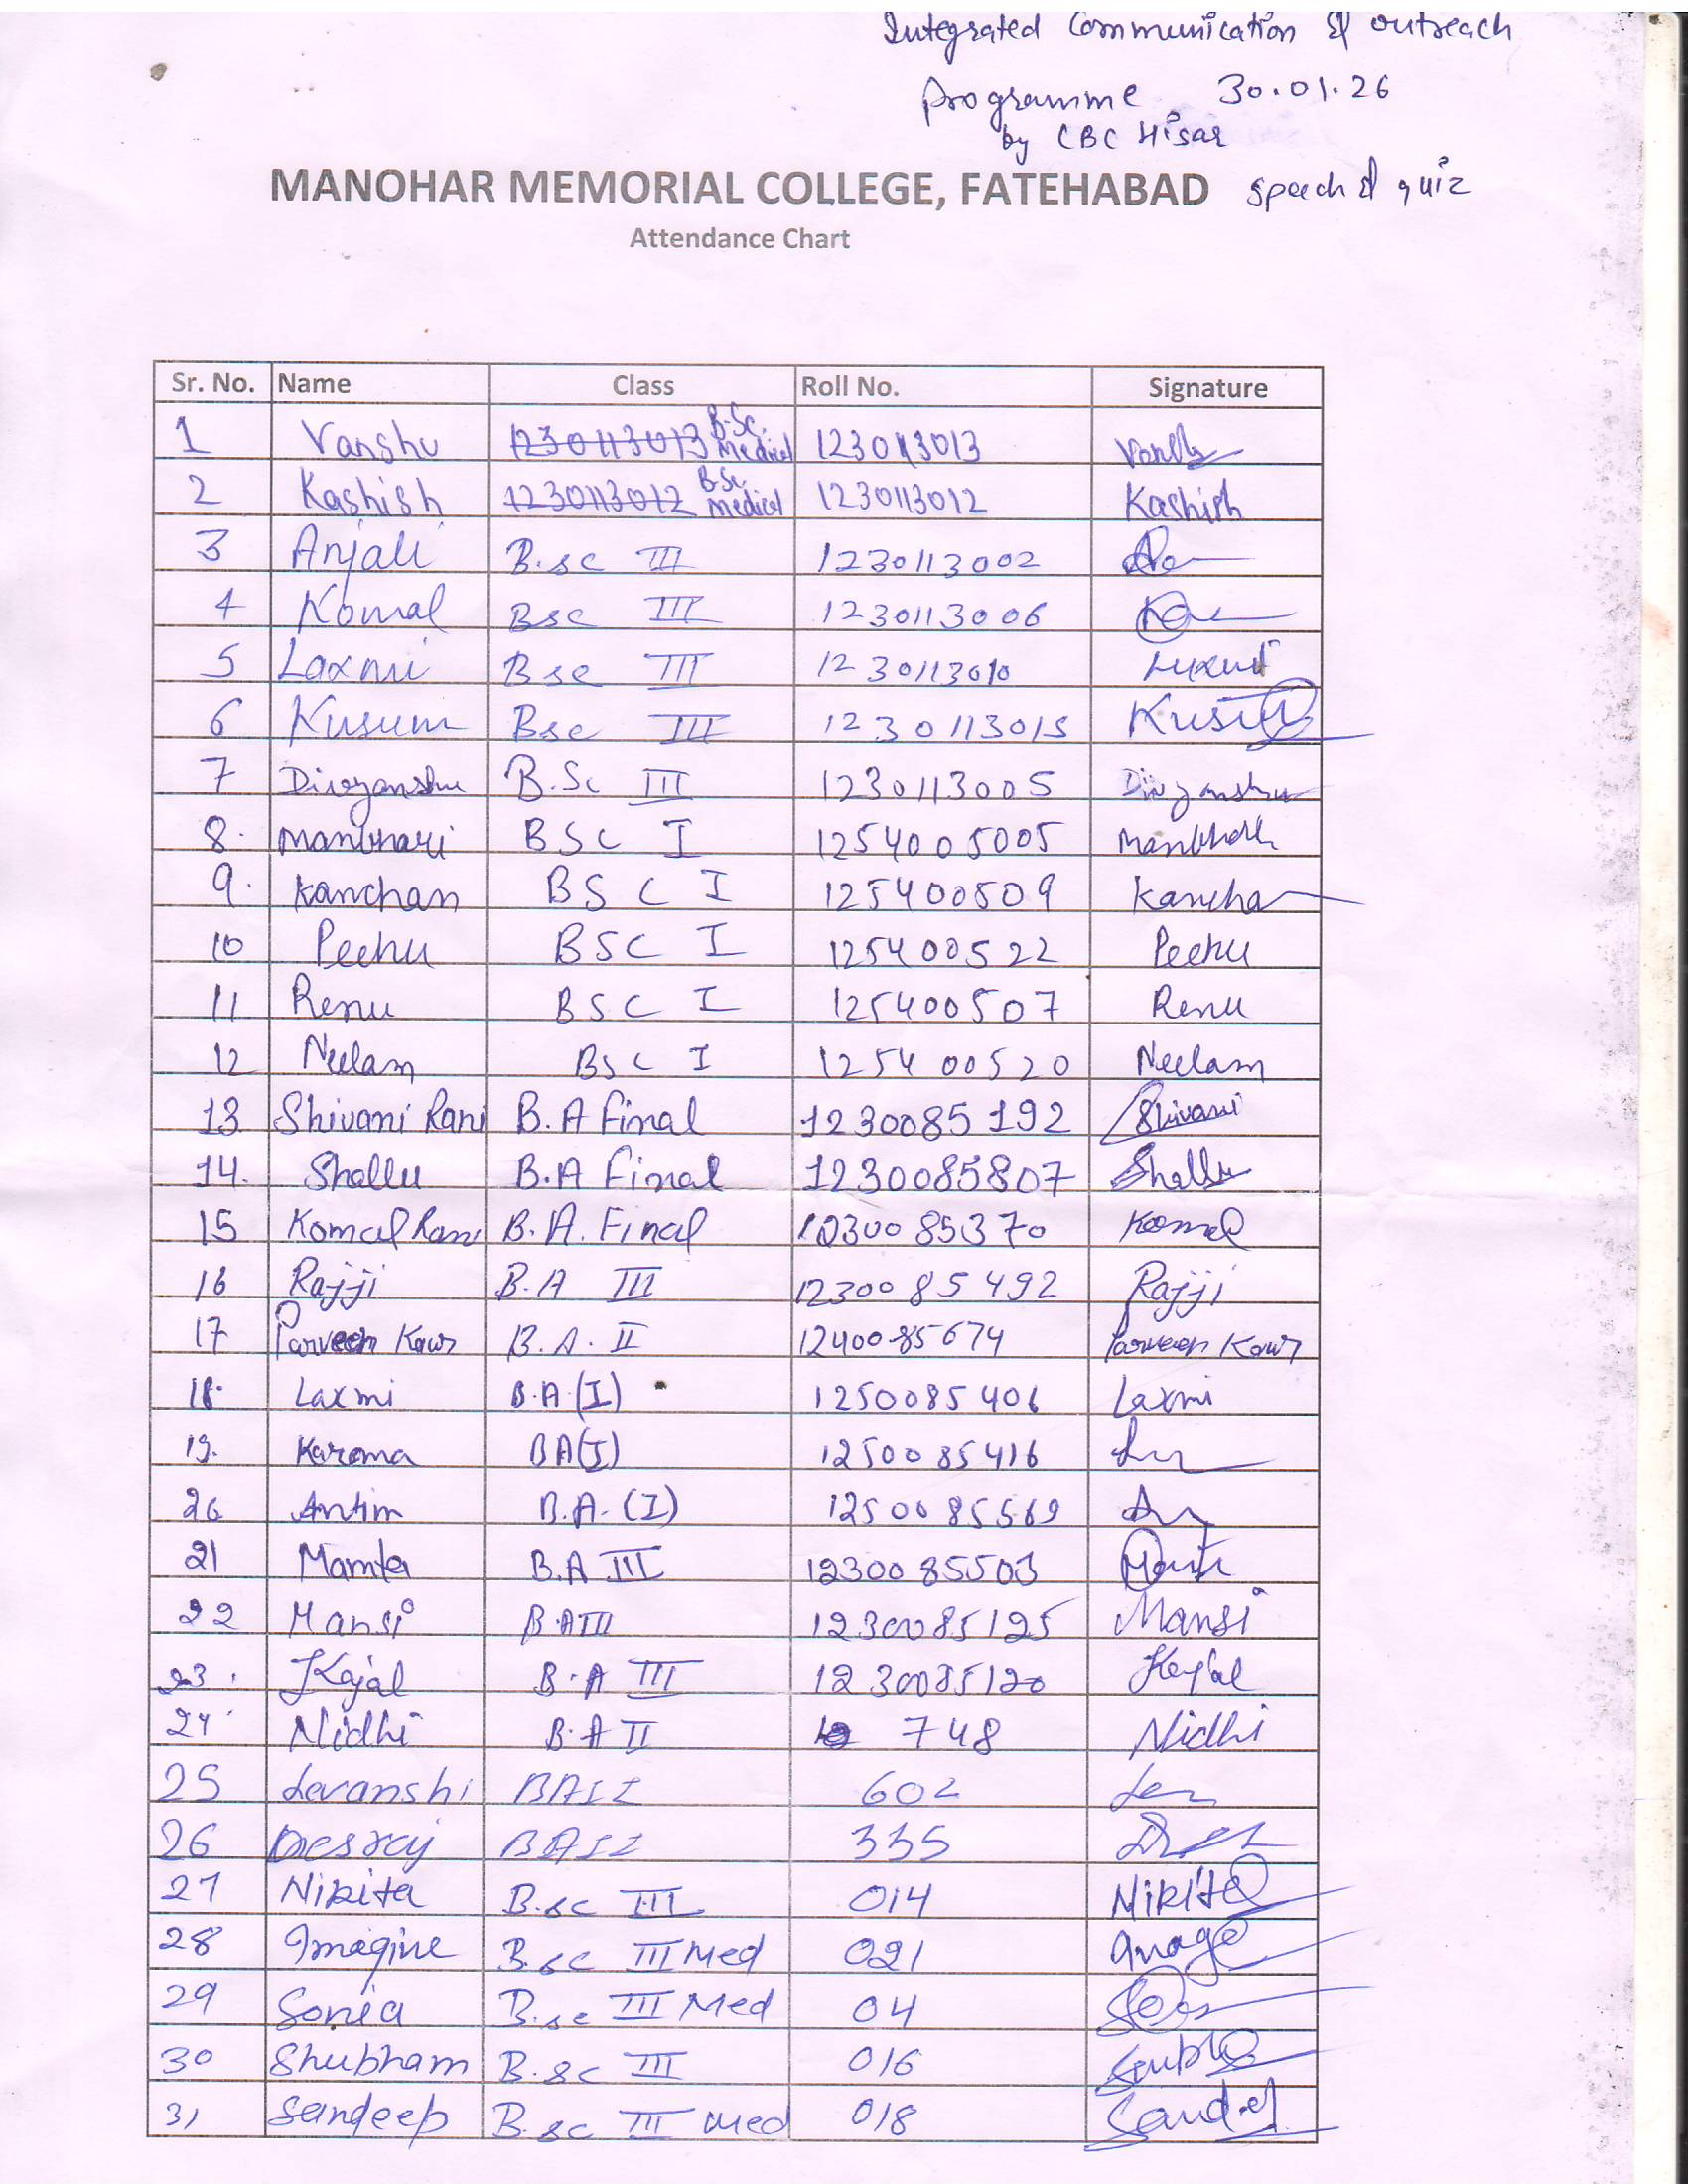 Integrated Communication & outreach
programme 30.01.26
by CBC Hisar
MANOHAR MEMORIAL COLLEGE, FATEHABAD speech & quiz
Attendance Chart
Sr. No. Name Class Roll No. Signature
1 Vanshu 1230113013 B.Sc. Medical 1230113013
2 Kashish 1230113012 B.Sc Medical 1230113012 Kashish
3 Anjali B.sc III 1230113002
4 Komal Bsc III 1230113006
5 Laxmi Bsc III 1230113010 Luxmi
6 Kusum Bsc III 1230113015 Kusum
7 Divyanshu B.Sc III 1230113005 Divyanshu
8. Manbhari BSC I 1254005005
9. Kanchan BSC I 125400509 Kancha
10 Peehu BSC I 125400522 Peehu
11 Renu BSC I 125400507 Renu
12 Neelam BSC I 125400520 Neelam
13 Shivani Rani B.A Final 1230085192 Shivani
14. Shallu B.A Final 1230085807 Shallu
15 Komal Rani B.A. Final 1230085370 Komal
16 Rajji B.A III 1230085492 Rajji
17 Parveen Kaur B.A. II 1240085674 Parveen Kaur
18. Laxmi B.A.(I) 1250085406 Laxmi
19. Karma BA(I) 1250085416
20 Antim B.A.(I) 1250085569
21 Mamta B.A III 1230085503
22 Mansi B.A III 1230085125 Mansi
23. Kajal B.A III 1230085120 Kajal
24 Nidhi B.A II 748 Nidhi
25 devanshi BAII 602
26 Desraj BAII 335
27 Nikita B.sc III 014 Nikita
28 Imagine B.sc III Med 021
29 Sonia B.sc III Med 04
30 Shubham B.sc III 016
31 Sandeep B.sc III Med 018